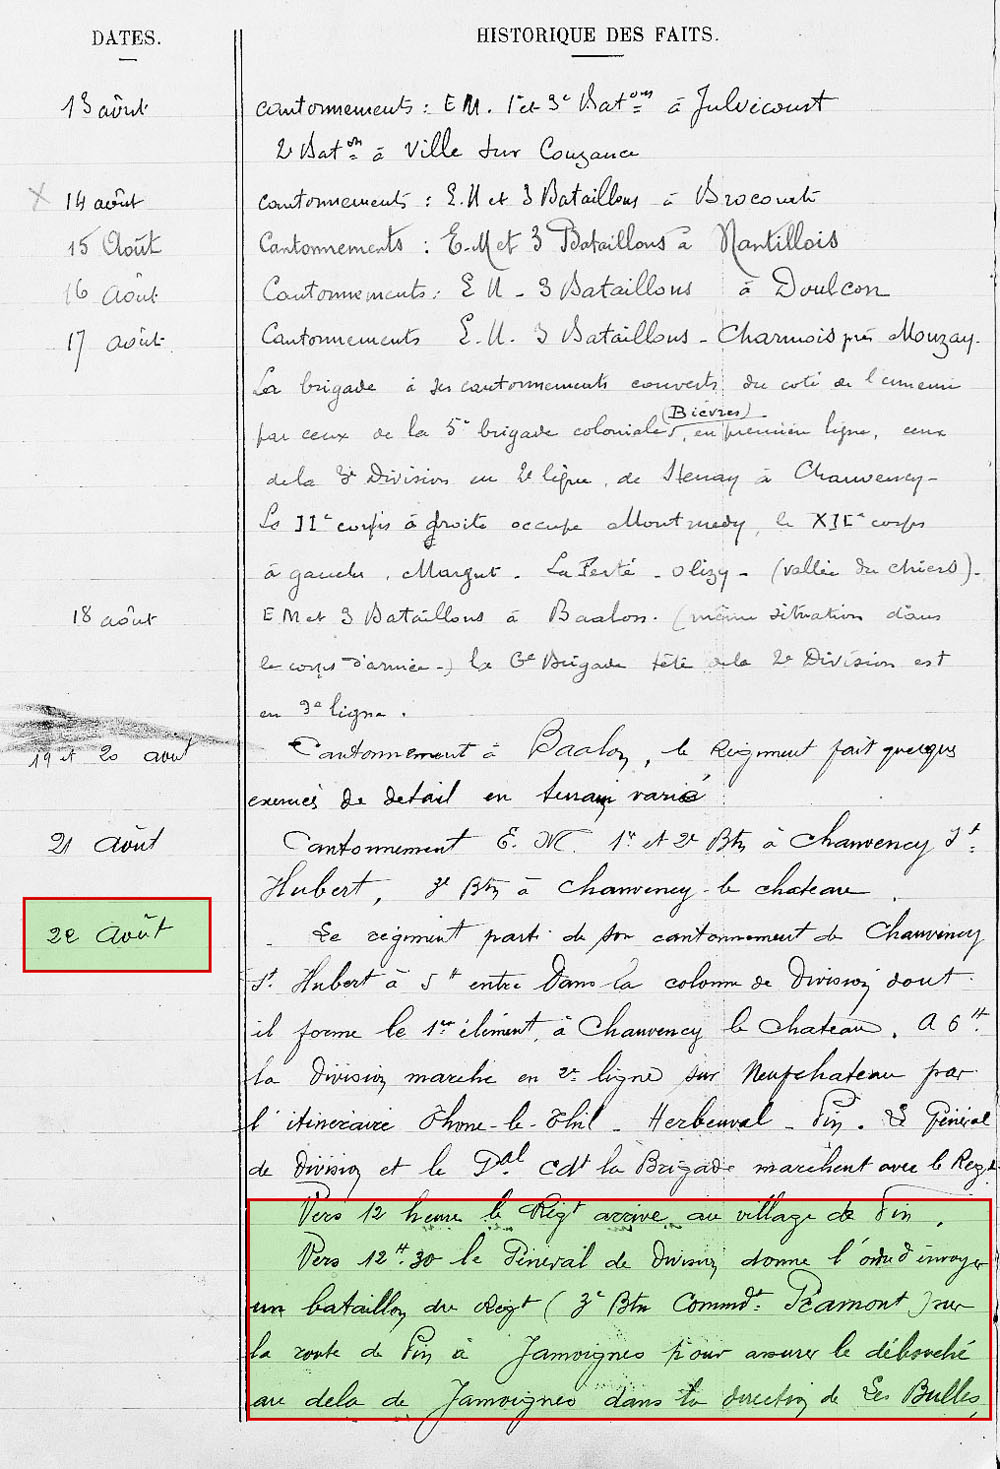 DATES.
HISTORIQUE DES FAITS.
13 août
cantonnements : E M. 1er et 3e Bat^ons à Julvécourt
2e Bat^on à Ville sur Couzance
X 14 août
cantonnements : E.M et 3 Bataillons à Brocourt
15 Août
Cantonnements : E.M et 3 Bataillons à Nantillois
16 Août
Cantonnements : E M - 3 Bataillons à Doulcon
17 août
Cantonnements E. M. 3 Bataillons - Charmois près Mouzay.
La brigade a ses cantonnements couverts du coté de l'ennemi
(Bièvres)
par ceux de la 5e brigade coloniale, en première ligne, ceux
de la 3e Division en 2e ligne, de Stenay à Chauvency-
Le IIe corps à droite occupe Montmedy, le XIIe corps
à gauche, Margut - La Ferté - Olizy - (vallée du Chiers).
18 août
E M et 3 Bataillons à Baalon. (même situation dans
le corps d'armée -) la 6e Brigade tête de la 2e Division est
en 3e ligne.
19 et 20 août
Cantonnement à Baalon, le Régiment fait quelques
exercices de detail en terrain varié
21 Août
Cantonnement E. M. 1er et 2e Btn à Chauvency St
Hubert, 3e Btn à Chauvency-le chateau
22 Août
Le régiment parti de son cantonnement de Chauvency
St. Hubert à 5H entre dans la colonne de Division dont
il forme le 1er élément, à Chauvency le chateau. A 6H.
la division marche en 2e ligne sur Neufchateau par
l'itinéraire Thone-le-Thil - Herbeuval - Pin. Le Général
de Division et le Gal Cdt la Brigade marchent avec le Regt
Vers 12 heures le Régt arrive au village de Pin.
Vers 12H.30 le Général de Division donne l'ordre d'envoyer
un bataillon du Régt (3e Btn Commdt. Pramont) sur
la route de Pin à Jamoignes pour assurer le débouché
au dela de Jamoignes dans la direction de Les Bulles,